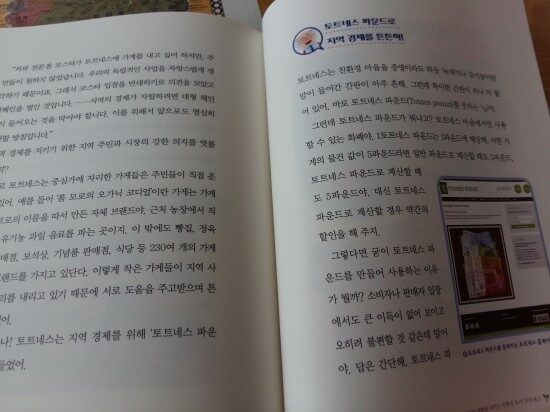 "커피 전문점 코스타가 토트네스에 가게를 내고 싶어 하지만, 주
민들이 원하지 않았습니다. 우리의 독립적인 사업을 자랑스럽게 생
각하기 때문이죠. 그래서 코스타 입점을 반대하기로 의견을 모았고
체인을 벌인 것입니다. ……지역의 경제가 자립하려면 대형 체인
이 들어오는 것을 막아야 합니다. 이를 위해서 앞으로도 열심히
할 방침입니다."
역 경제를 지키기 위한 지역 주민과 시장의 강한 의지를 엿볼
지?
로 토트네스는 중심가에 자리한 가게들은 주민들이 직접 운
있어. 예를 들어 '톰 모로의 오가닉 코디얼'이란 가게는 가게
모로의 이름을 따서 만든 자체 브랜드야. 근처 농장에서 직
유기농 과일 음료를 파는 곳이지. 이 밖에도 빵집, 정육
판매점, 보석상, 기념품 판매점, 식당 등 230여 개의 가게
브랜드를 가지고 있단다. 이렇게 작은 가게들이 지역 사
리를 내리고 있기 때문에 서로 도움을 주고받으며 튼
있어.
나! 토트네스는 지역 경제를 위해 '토트네스 파운
들었어.
토트네스 파운드로
지역 경제를 튼튼히!
토트네스는 친환경 마을을 증명이라도 하듯 '녹색'이나 '유기농'이란
말이 들어간 간판이 아주 흔해. 그런데 특이한 간판이 하나 더 붙
어 있어. 바로 토트네스 파운드(Totnes pound)를 뜻하는 'tp'야.
그런데 토트네스 파운드가 뭐냐고? 토트네스 마을에서만 사용
할 수 있는 화폐야. 1토트네스 파운드는 1파운드에 해당해. 어떤 가
게의 물건 값이 5파운드라면 일반 파운드로 계산할 때도 5파운드,
토트네스 파운드로 계산할 때
도 5파운드야. 대신 토트네스
파운드로 계산할 경우 약간의
할인을 해 주지.
그렇다면 굳이 토트네스 파
운드를 만들어 사용하는 이유
가 뭘까? 소비자나 판매자 입장
에서도 큰 이득이 없어 보이고
오히려 불편할 것 같은데 말이
야. 답은 간단해. 토트네스 파
TOTNES POUND
토트네스 파운드를 홍보하는 토트네스 홈페이
토트네스